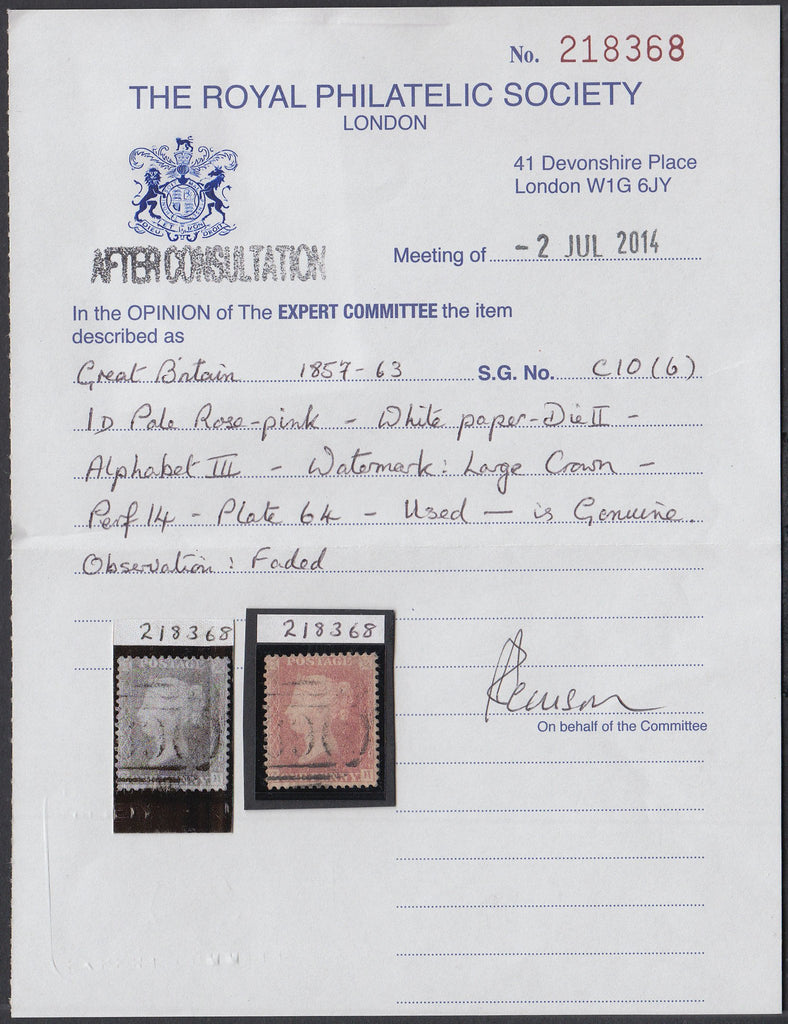 No. 218368
THE ROYAL PHILATELIC SOCIETY
LONDON
41 Devonshire Place
London W1G 6JY
AFTER CONSULTATION
Meeting of - 2 JUL 2014
In the OPINION of The EXPERT COMMITTEE the item
described as
Great Britain 1857-63 S.G. No. C10(6)
1D Pale Rose-pink - White paper - Die II -
Alphabet III - Watermark: Large Crown -
Perf 14 - Plate 64 - Used - is Genuine.
Observation: Faded
218368 218368
POSTAGE POSTAGE
On behalf of the Committee